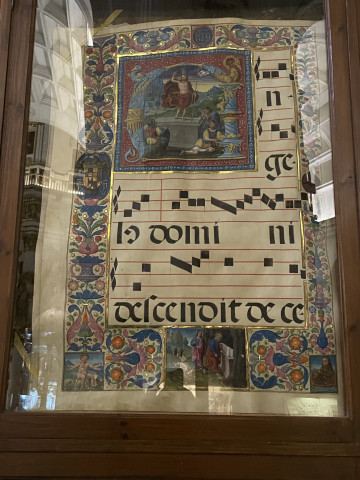 n
ge
lo domi ni
descendit de ce